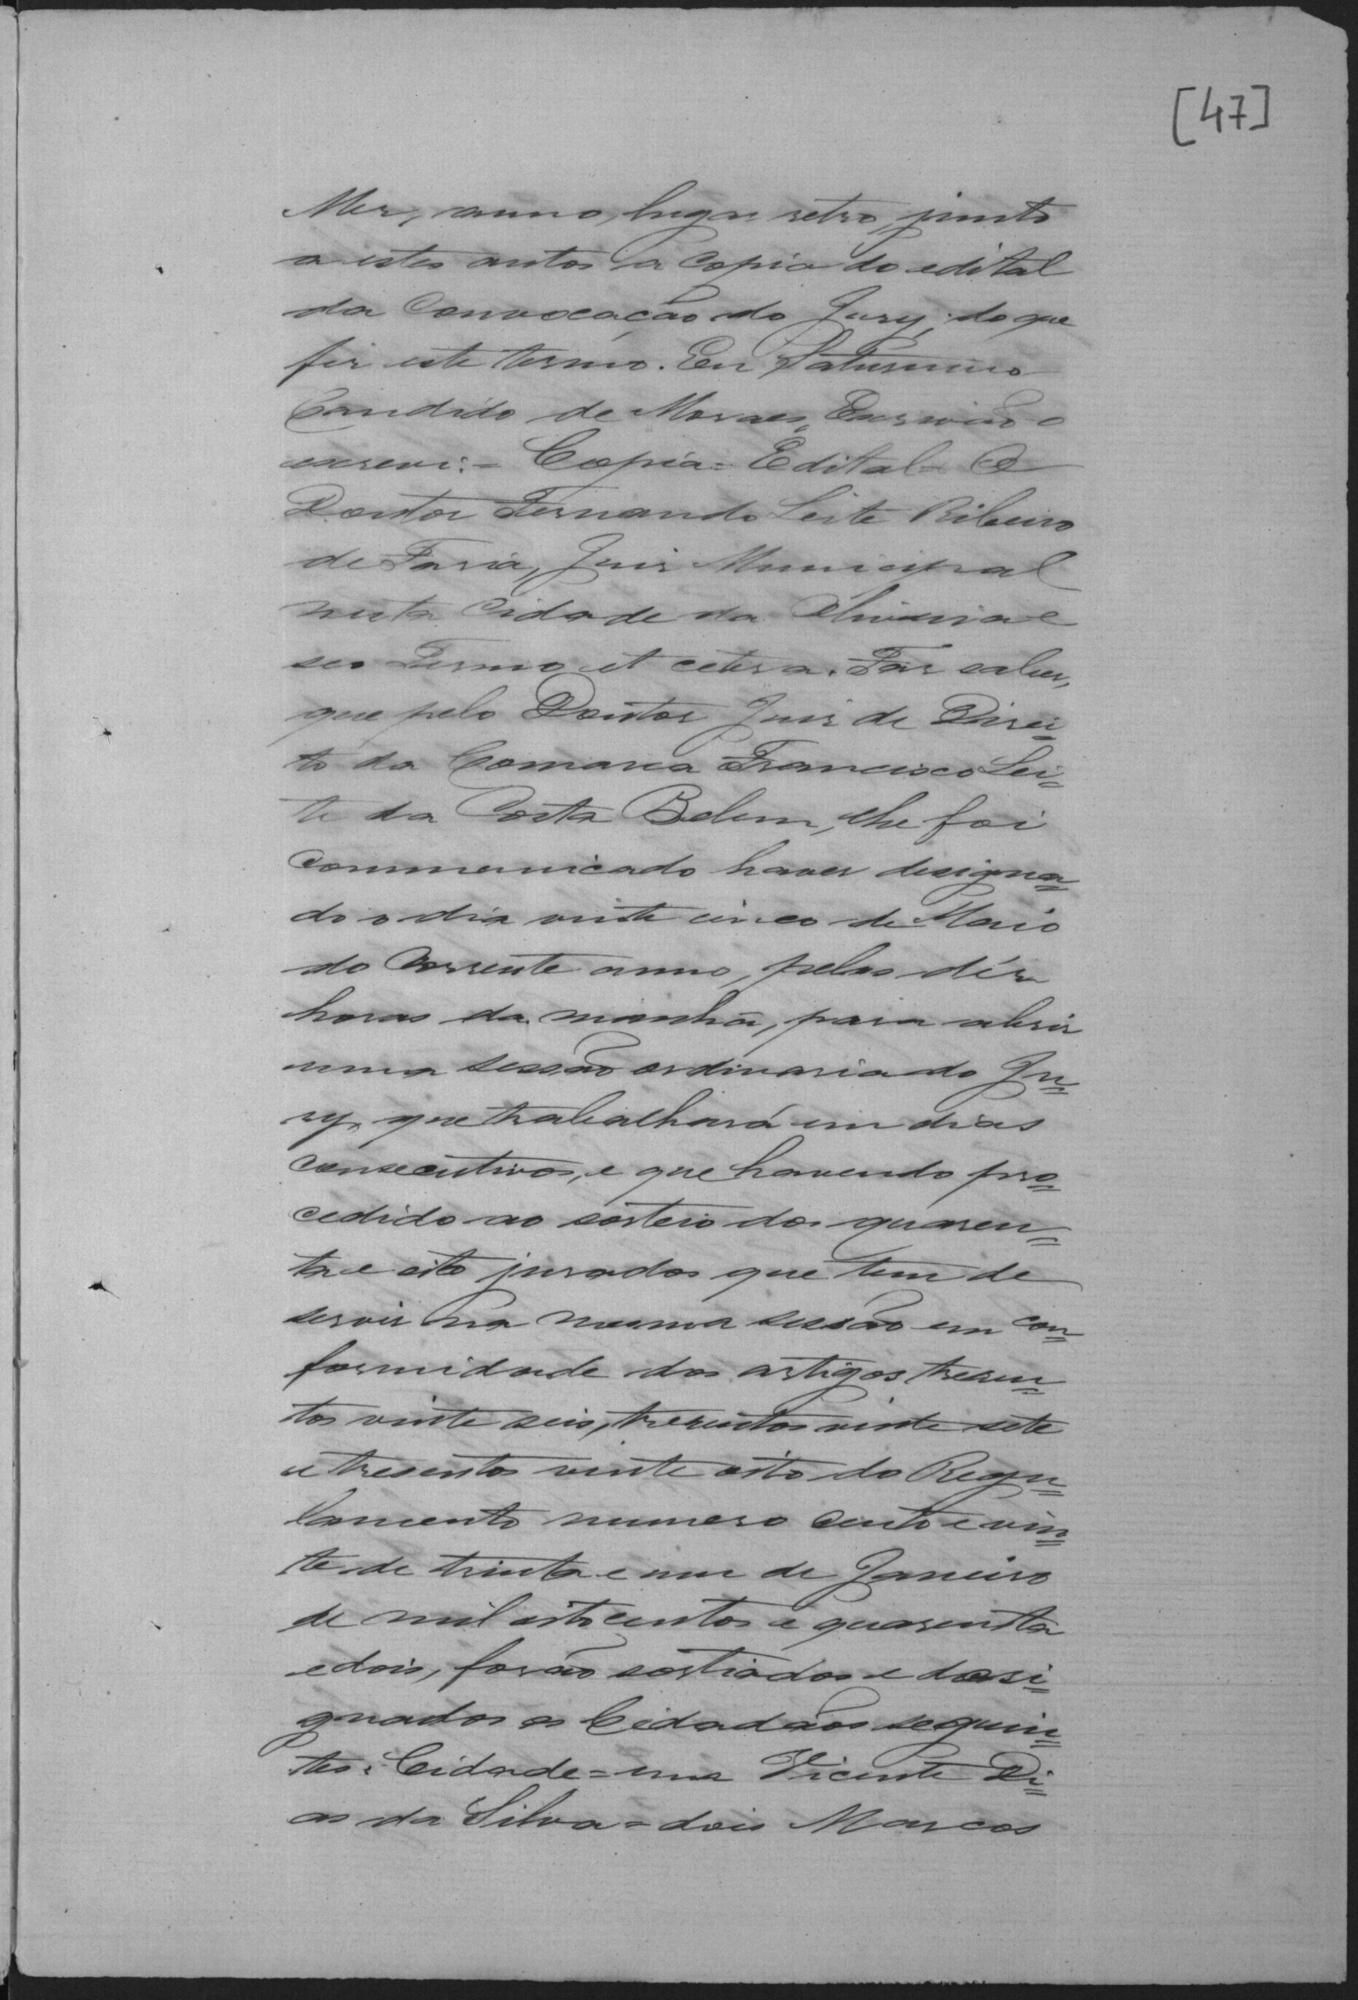 [47]
Mez, anno, lugar retro, junto
a estes autos a copia do edital
da Convocação do Jury; do que
fiz este termo. Eu Saturnino
Candido de Moraes, Escrivão o
escrevi:- Copia = Edital = O
Doutor Fernando Leite Ribeiro
de Faria, Juiz Municipal
nesta Cidade da Oliveira e
seo Termo et cetera. Faz saber,
que pelo Doutor Juiz de Direi=
to da Comarca Francisco Lei=
te da Costa Belem, lhe foi
communicado haver designa=
do o dia vinte cinco de Maio
do corrente anno, pelas déz
horas da manhã, para abrir
uma sessão ordinaria do Ju=
ry, que trabalhará em dias
consecutivos, e que havendo pro=
cedido ao sorteio dos quaren=
ta e oito jurados que tem de
servir na mesma sessão em con=
formidade dos artigos tresen=
tos vinte seis, tresentos vinte sete
e tresentos vinte oito do Regu=
lamento numero cento e vin=
te de trinta e um de Janeiro
de mil oitocentos e quarenta
e dois, forão sortiados e desi=
gnados os Cidadãos seguin=
tes: Cidade = um Vicente Di=
as da Silva = dois Marcos